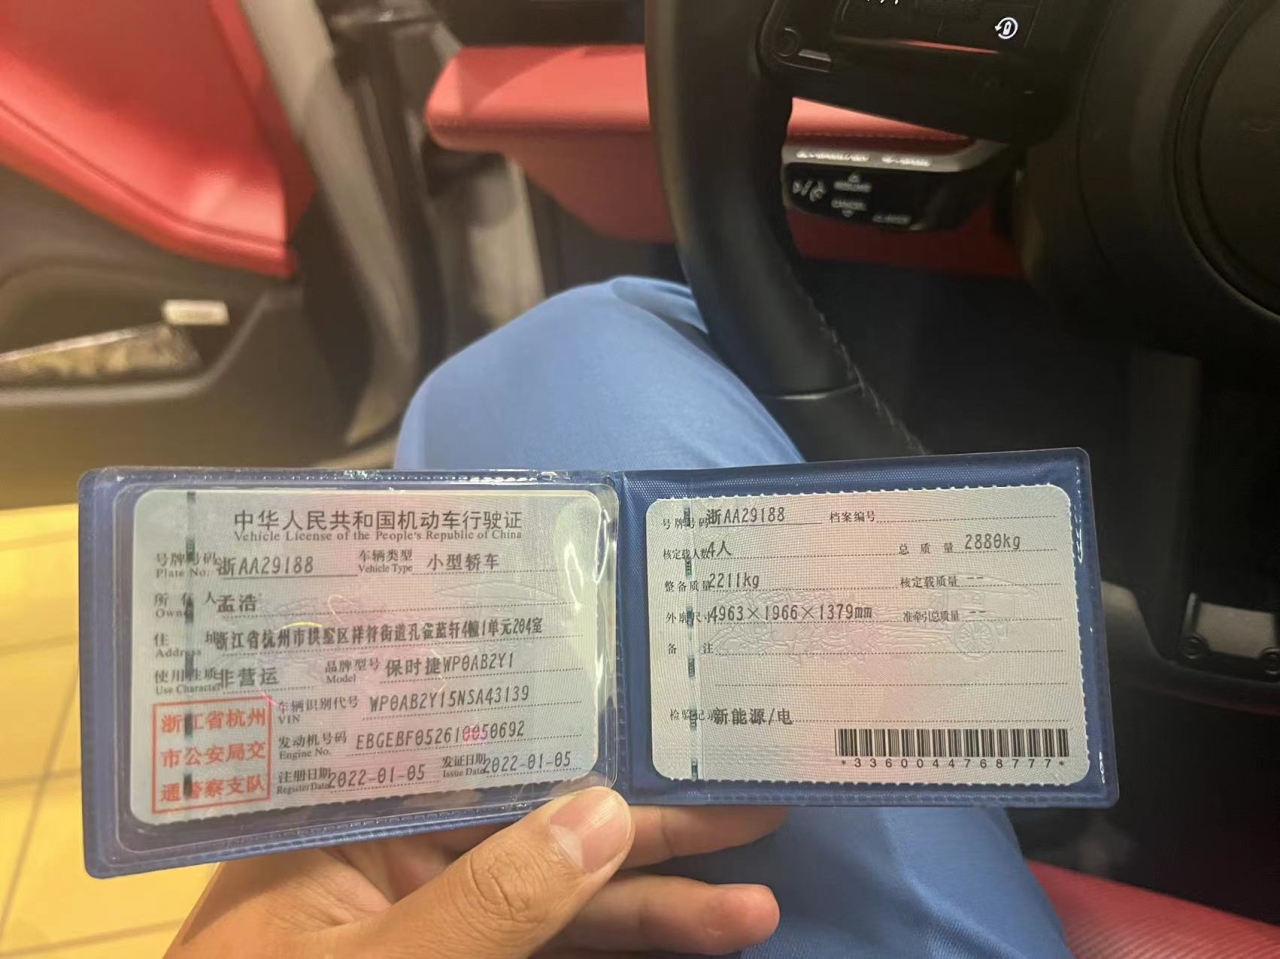 中华人民共和国机动车行驶证
Vehicle License of the People's Republic of China
号牌号码 浙AA29188 车辆类型 小型轿车
Plate No. Vehicle Type
所有人 孟浩
Owner
住址 浙江省杭州市拱墅区祥符街道孔雀蓝轩4幢1单元204室
Address
使用性质 非营运 品牌型号 保时捷WP0AB2Y1
Use Character Model
浙江省杭州市公安局交通警察支队
车辆识别代号 WP0AB2Y15NSA43139
VIN
发动机号码 EBGEBF052610050692
Engine No.
注册日期 2022-01-05 发证日期 2022-01-05
Register Date Issue Date
号牌号码 浙AA29188 档案编号
核定载人数 4人 总质量 2880kg
整备质量 2211kg 核定载质量 --
外廓尺寸 4963×1966×1379mm 准牵引总质量 --
备注
检验记录 新能源/电
*3360044768777*
CANCEL